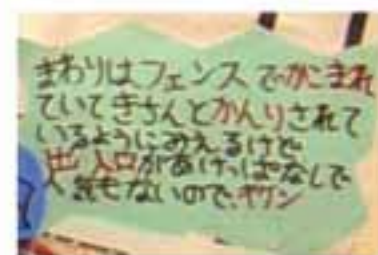 まわりはフェンスでかこまれ
ていてきちんとかんりされて
いるようにみえるけど
出入口があけっぱなしで
人気もないので、キケン